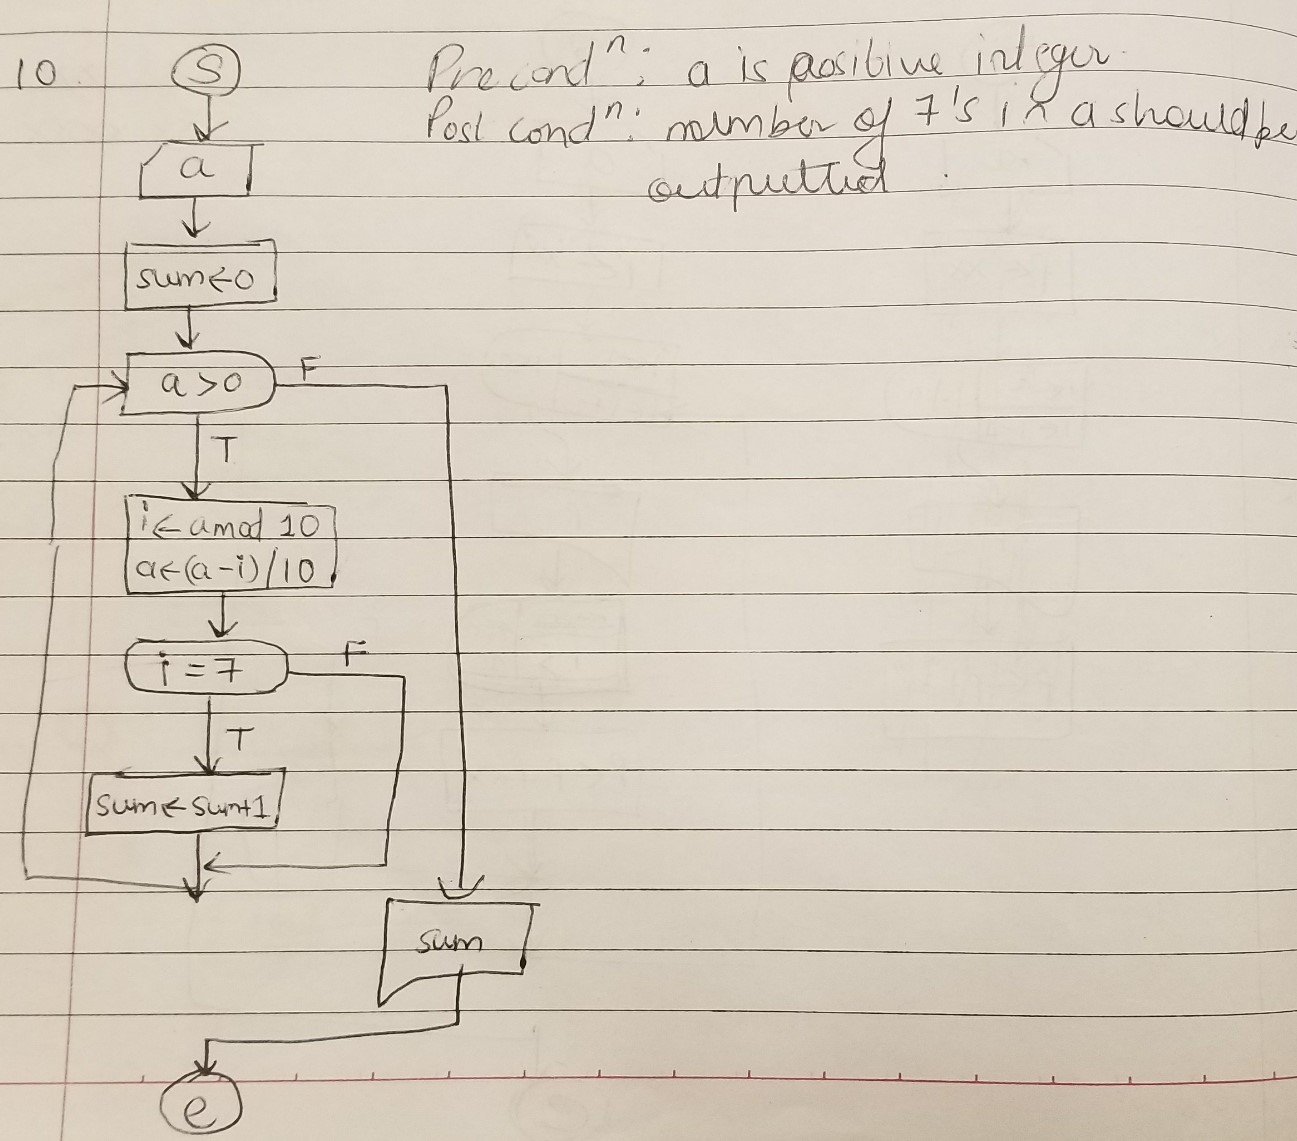 10.
S
Precondⁿ: a is positive integer.
Post condⁿ: number of 7's in a should be
outputted.
a
sum←0
a>0
F
T
i←amod 10
a←(a-i)/10
i=7
F
T
sum←sum+1
sum
e